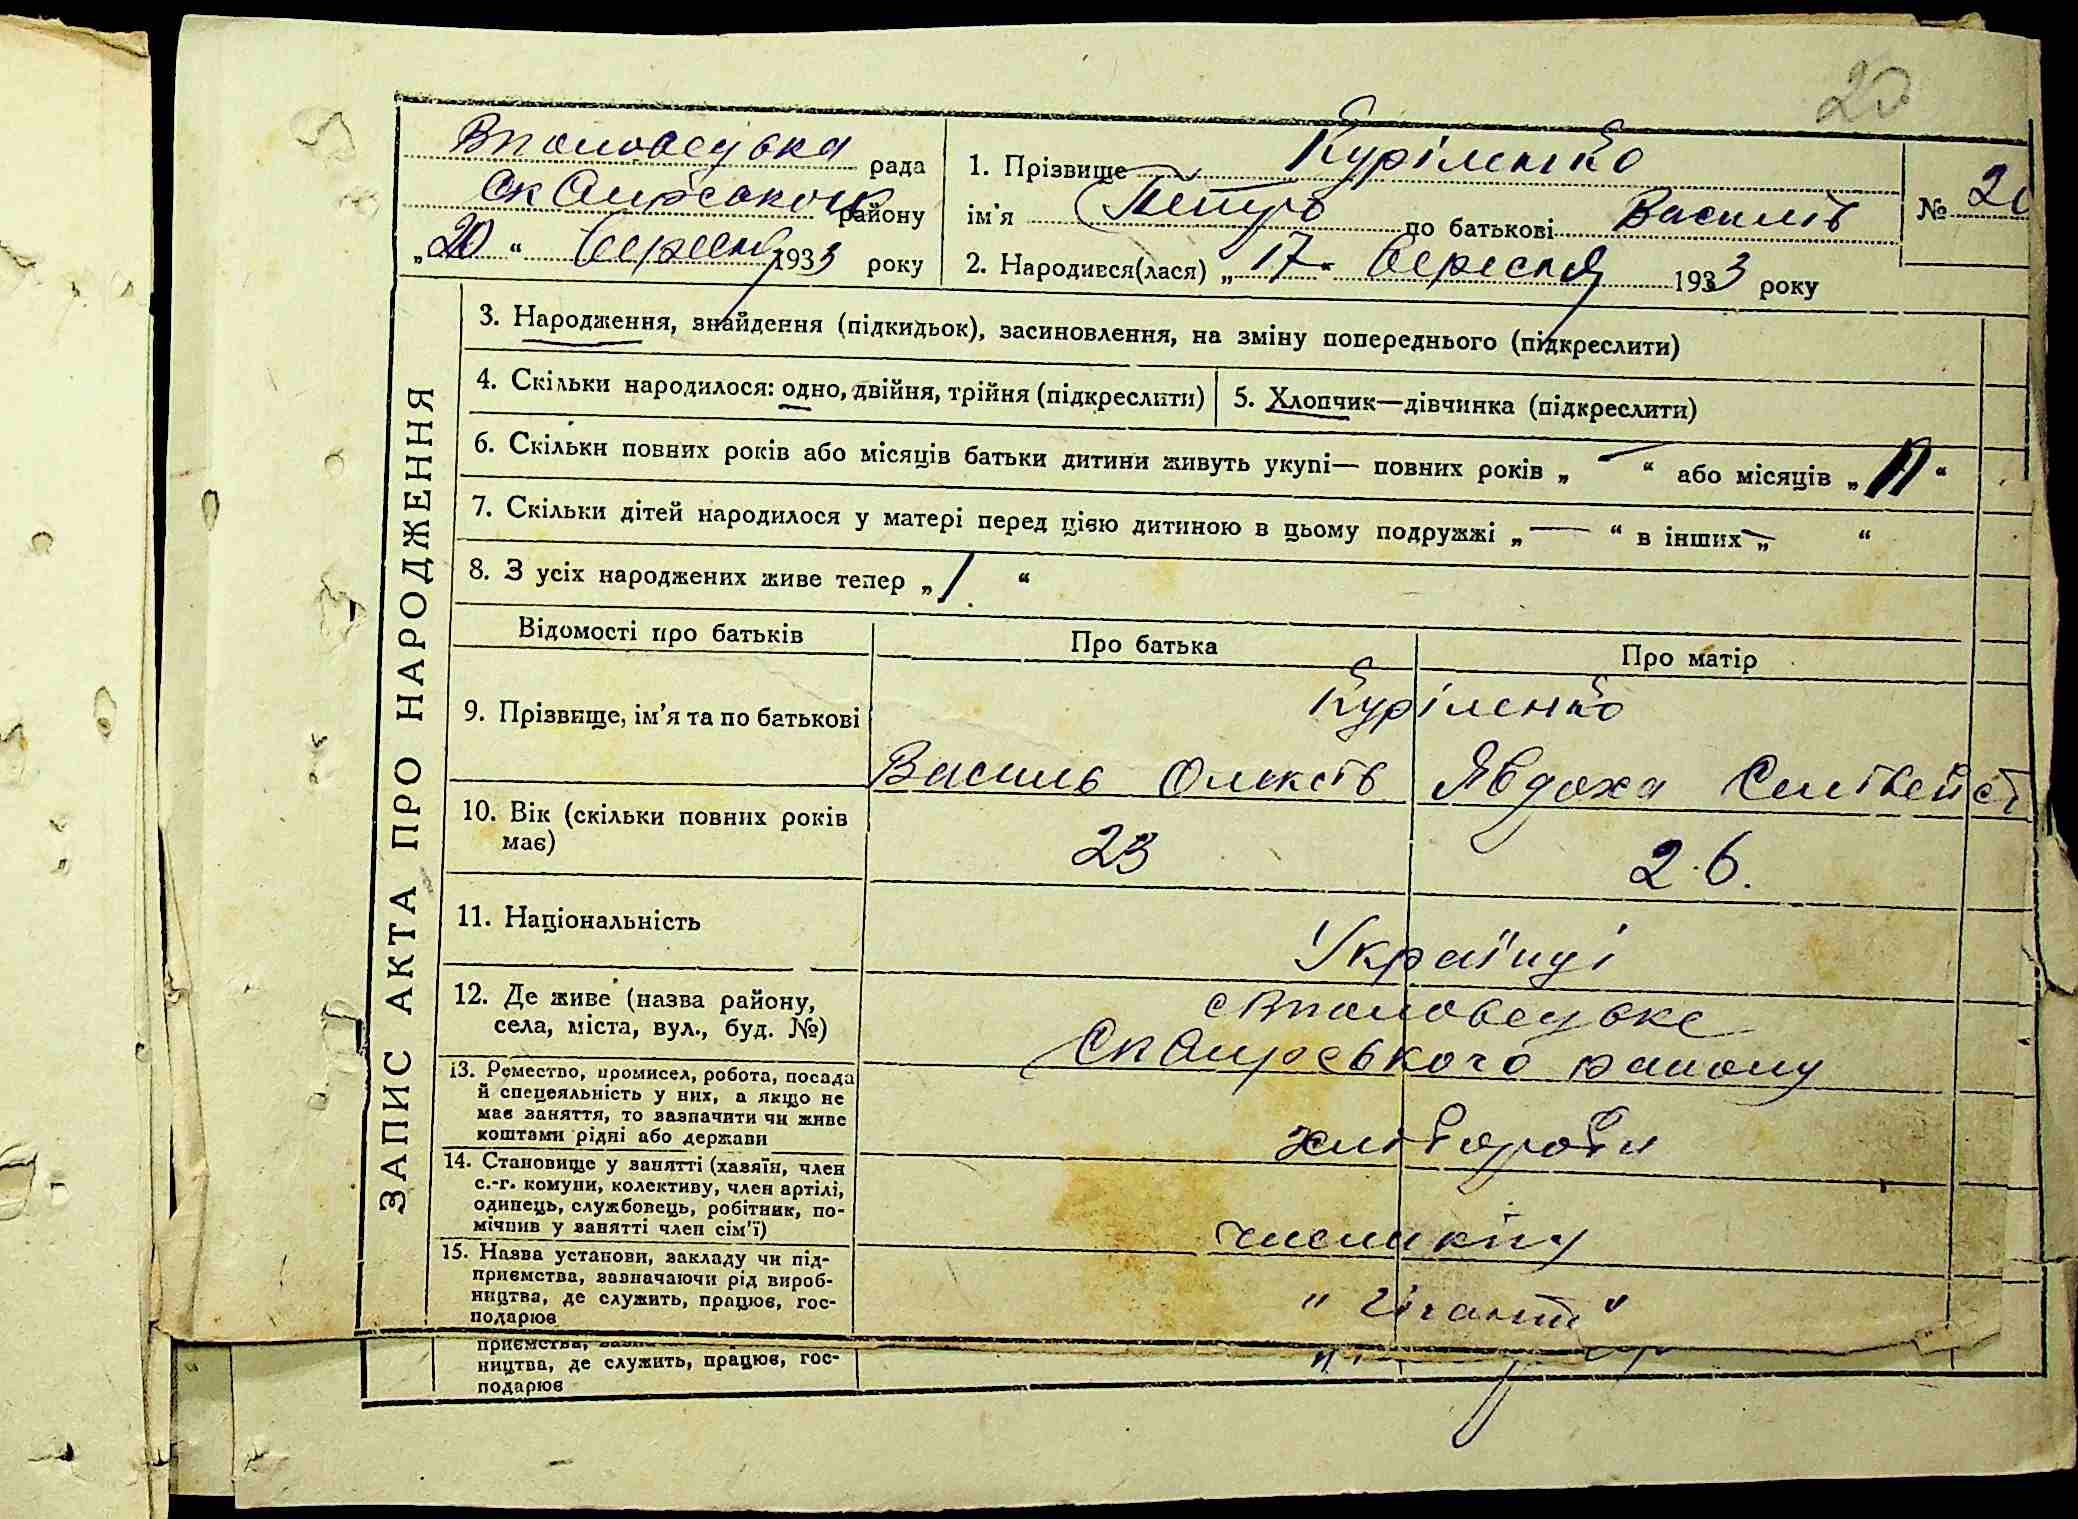 20
Вполовецька рада
Сквирського району
„20“ вересня 1933 року
1. Прізвище Куріленко
ім’я Петро по батькові Василів
№ 20
2. Народився(лася) „17“ вересня 1933 року
ЗАПИС АКТА ПРО НАРОДЖЕННЯ
3. Народження, знайдення (підкидьок), засиновлення, на зміну попереднього (підкреслити)
4. Скільки народилося: одно, двійня, трійня (підкреслити)
5. Хлопчик—дівчинка (підкреслити)
6. Скільки повних років або місяців батьки дитини живуть укупі— повних років „ — “ або місяців „11“
7. Скільки дітей народилося у матері перед цією дитиною в цьому подружжі „ — “ в інших „ — “
8. З усіх народжених живе тепер „1“
Відомості про батьків
Про батька
Про матір
9. Прізвище, ім’я та по батькові
Куріленко
Василь Олексів
Явдоха
10. Вік (скільки повних років
має)
23
26.
11. Національність
Українці
12. Де живе (назва району,
села, міста, вул., буд. №)
с Вполовецьке
Сквирського району
13. Ремество, промисел, робота, посада
й спецеяльність у них, а якщо не
має заняття, то зазначити чи живе
коштами рідні або держави
хлібороби
14. Становище у занятті (хазяїн, член
с.-г. комуни, колективу, член артілі,
одинець, службовець, робітник, по-
мічнив у занятті член сім’ї)
15. Назва установи, закладу чи під-
приємства, зазначаючи рід вироб-
ництва, де служить, працює, гос-
подарює
"Гігант"
приємства,
ництва, де служить, працює, гос-
подарює